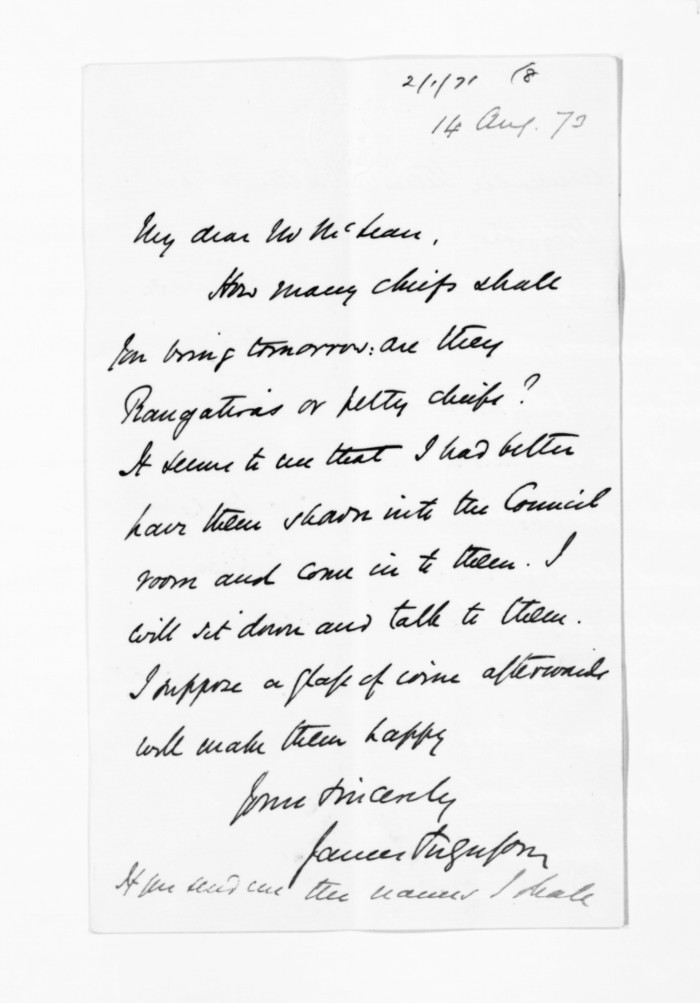 2/1/71 18
14 Aug. 73
My dear Mr McLean,
How many chiefs shall
you bring tomorrow: are they
Rangatiras or petty chiefs?
It seems to me that I had better
have them shown into the Council
room and come in to them. I
will sit down and talk to them.
I suppose a glass of wine afterwards
will make them happy
Yours sincerely
James Ferguson
If you send me the names I shall